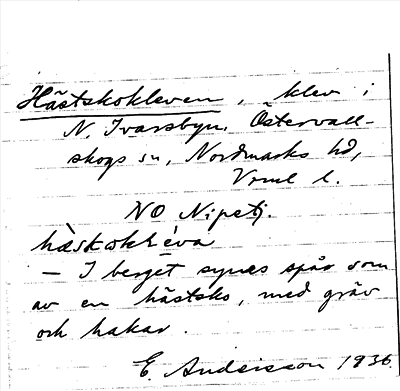 Hästskokleven, klev i
N. Ivarsbyn, Östervall-
skogs sn, Nordmarks hd,
Vrml l.
NO Nipetj.
hæskokléva
– I berget synes spår som
av en hästsko, med gräv
och hakar.
E. Andersson 1936.